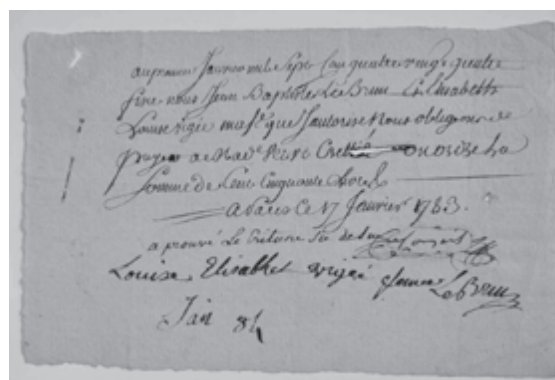 au premier Janvier mil sept Cen quatre vingt quatre
fixe nous Jean Baptiste Le Brun Elisabeth
Louise vigée ma fe que J'autorise Nous obligeons de
payer a Mad.e veuve ou ordre La
Somme de Cent Cinquante Livres
a Paris ce 17 Janvier 1783.
a prouvé Le Criture
Louise Elisabhet vigée femme Le Brun
Jan 84